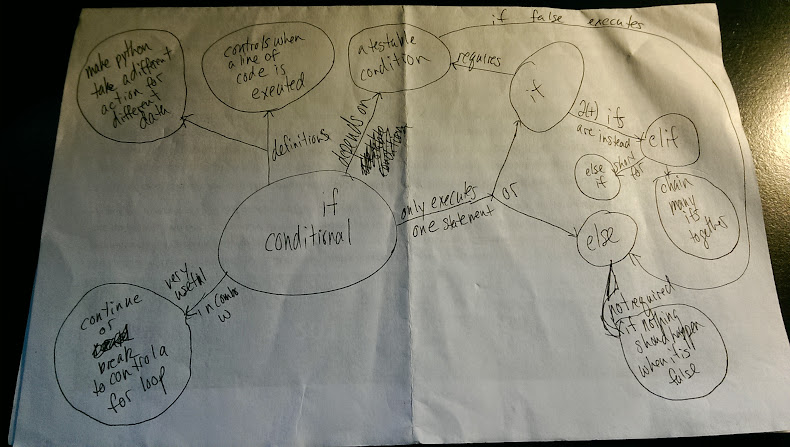 if false executes
make python
take a different
action for
different
data
controls when
a line of
code is
executed
a testable
condition
requires
if
2(+) ifs
are instead
elif
else
if
short
for
chain
many
ifs
together
definitions
depends on
if
conditional
only executes
one statement
or
else
very
useful
in combo
w
continue
or
break
to control a
for loop
not required
if nothing
should happen
when it is
false